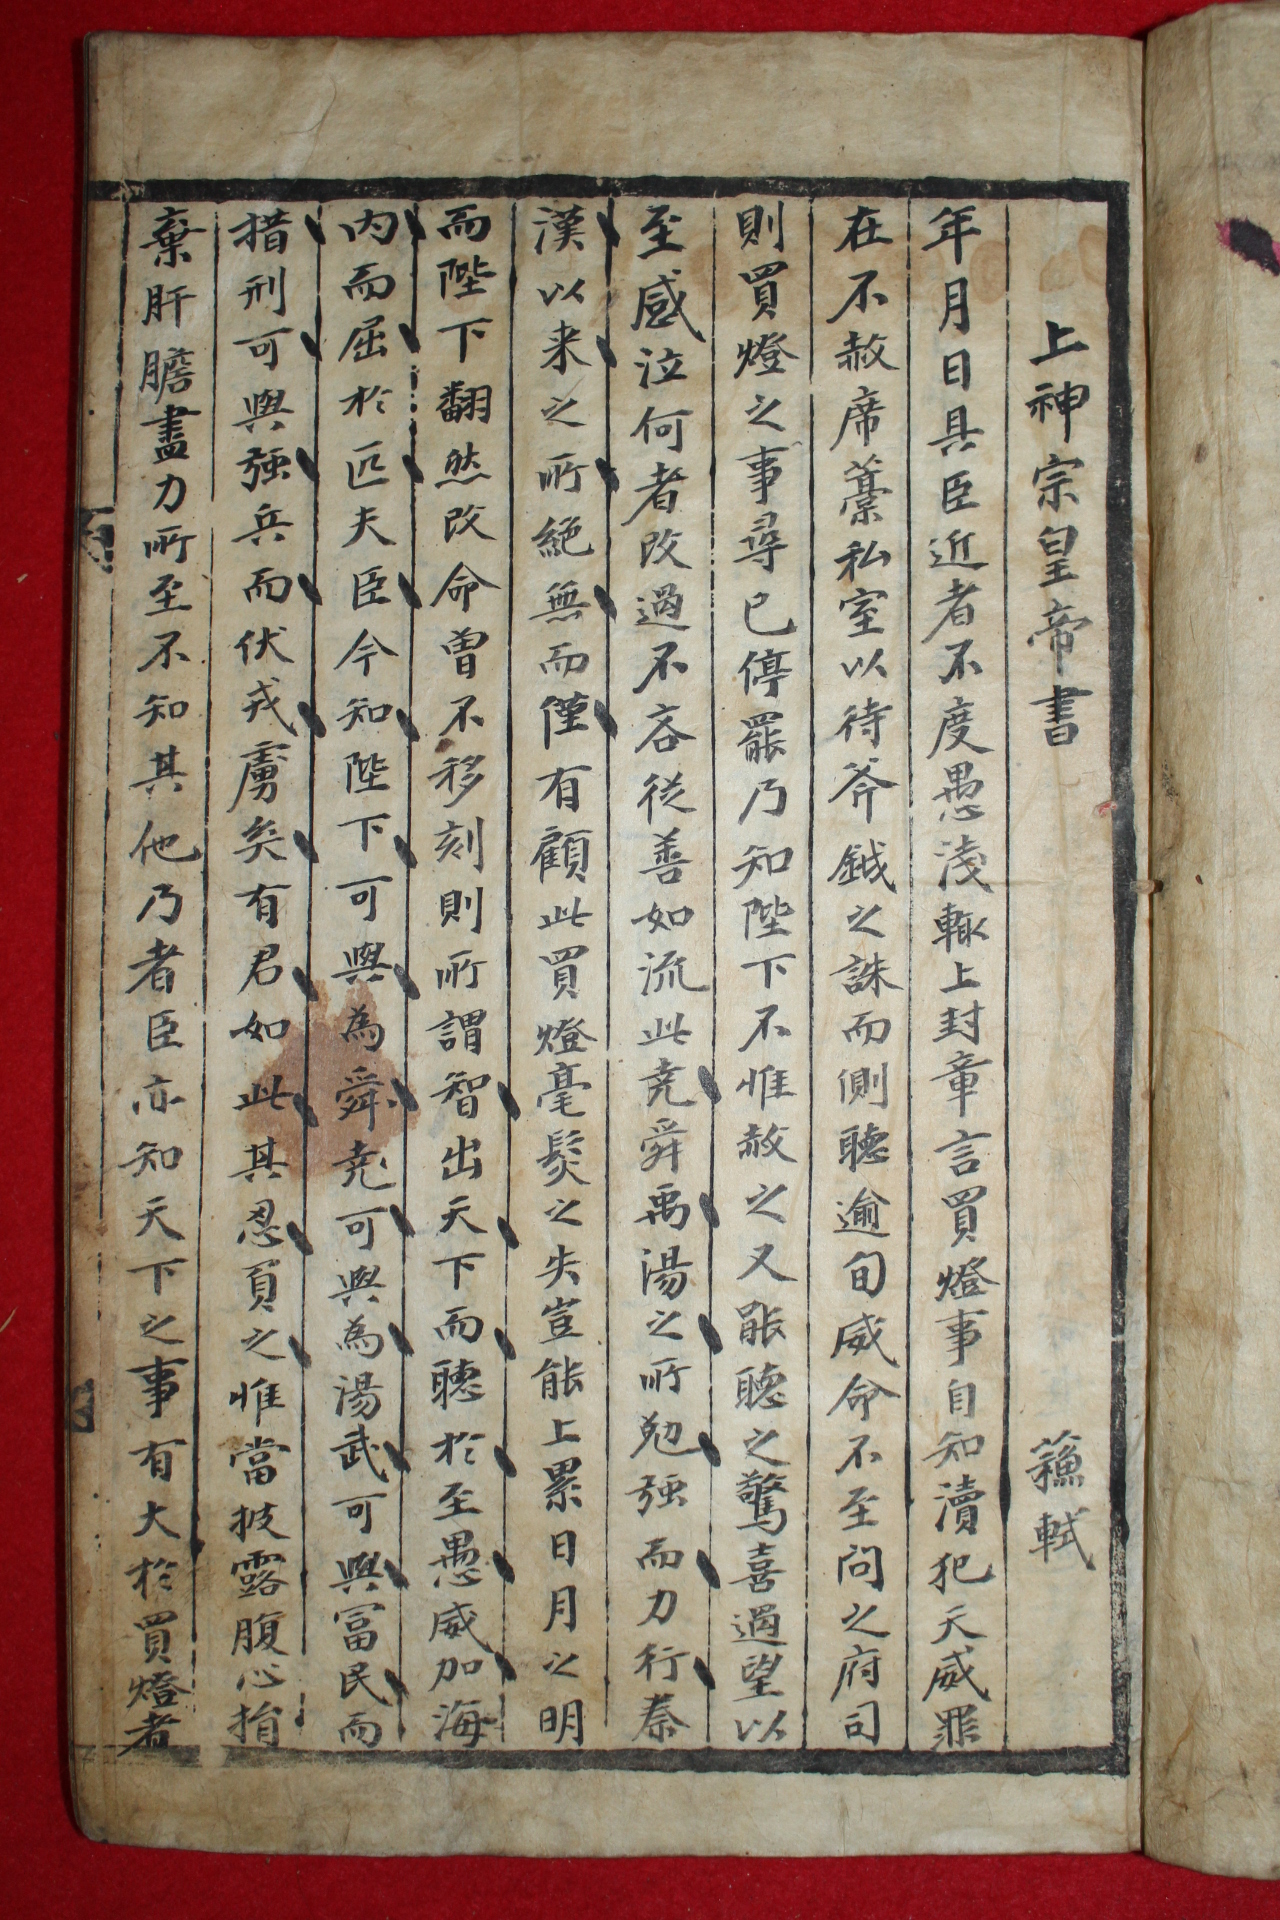 上神宗皇帝書 蘓軾
年月日具臣近者不度愚淺輙上封章言買燈事自知瀆犯天威罪
在不赦席藁私室以待斧鉞之誅而側聽逾旬威命不至問之府司
則買燈之事尋已停罷乃知陛下不惟赦之又能聽之驚喜過望以
至感泣何者改過不吝從善如流此堯舜禹湯之所勉强而力行秦
漢以来之所絶無而僅有顧此買燈毫髮之失豈能上累日月之明
而陛下翻然改命曾不移刻則所謂智出天下而聽於至愚威加海
内而屈於匹夫臣今知陛下可與為舜堯可與為湯武可與冨民而
措刑可與强兵而伏戎虜矣有君如此其忍負之惟當披露腹心捐
棄肝膽盡力所至不知其他乃者臣亦知天下之事有大於買燈者